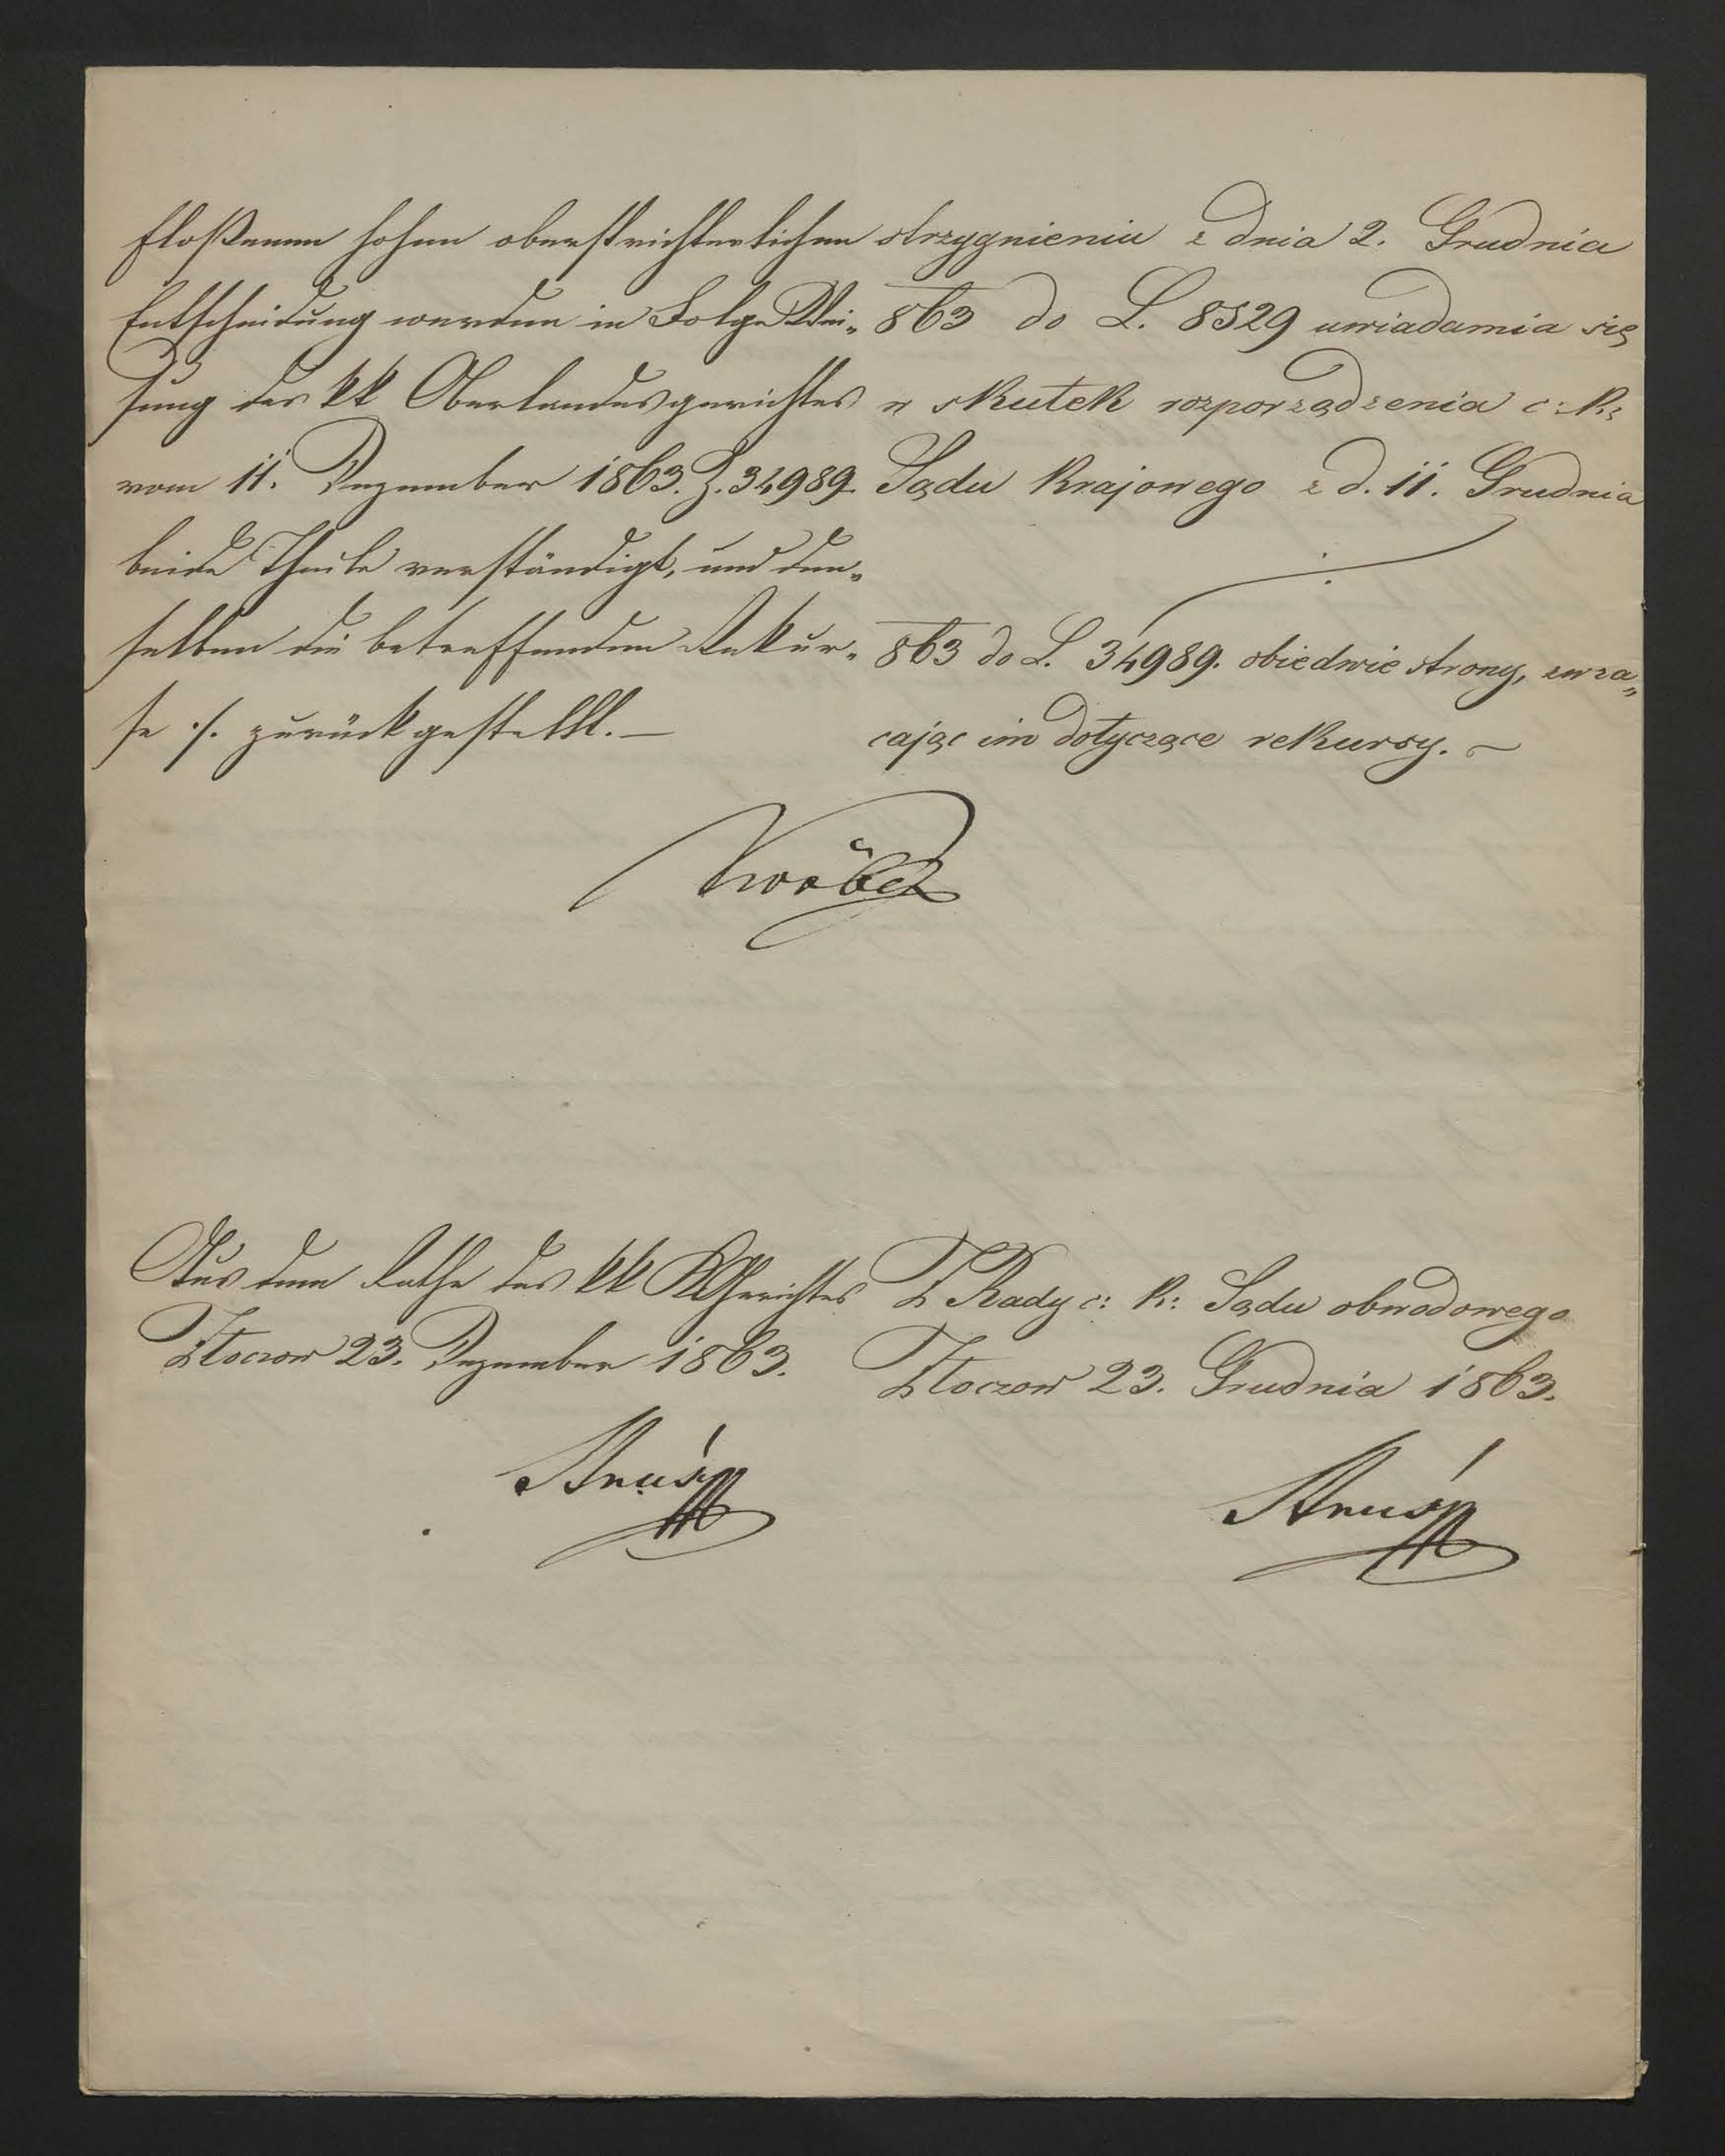 floßenen hohen oberstrichterlichen
Entscheidung werden in Folge Wei-
sung des kk Oberlandesgerichtes
vom 11. Dezember 1863. Z. 34989.
beide Theile verständigt, und den-
selben die betreffenden Rekur-
se ./. zurückgestellt. —
strzygnieniu z dnia 2. Grudnia
863 do L. 8529 uwiadamia się
w skutek rozporządzenia c: k:
Sądu Krajowego z d. 11. Grudnia
863 do L. 34989. obiedwie strony, zwra-
cając im dotyczące rekursy. —
Aus dem Rathe des kk KGerichtes
Złoczow 23. Dezember 1863.
Z Rady c: k: Sądu obwodowego
Złoczow 23. Grudnia 1863.